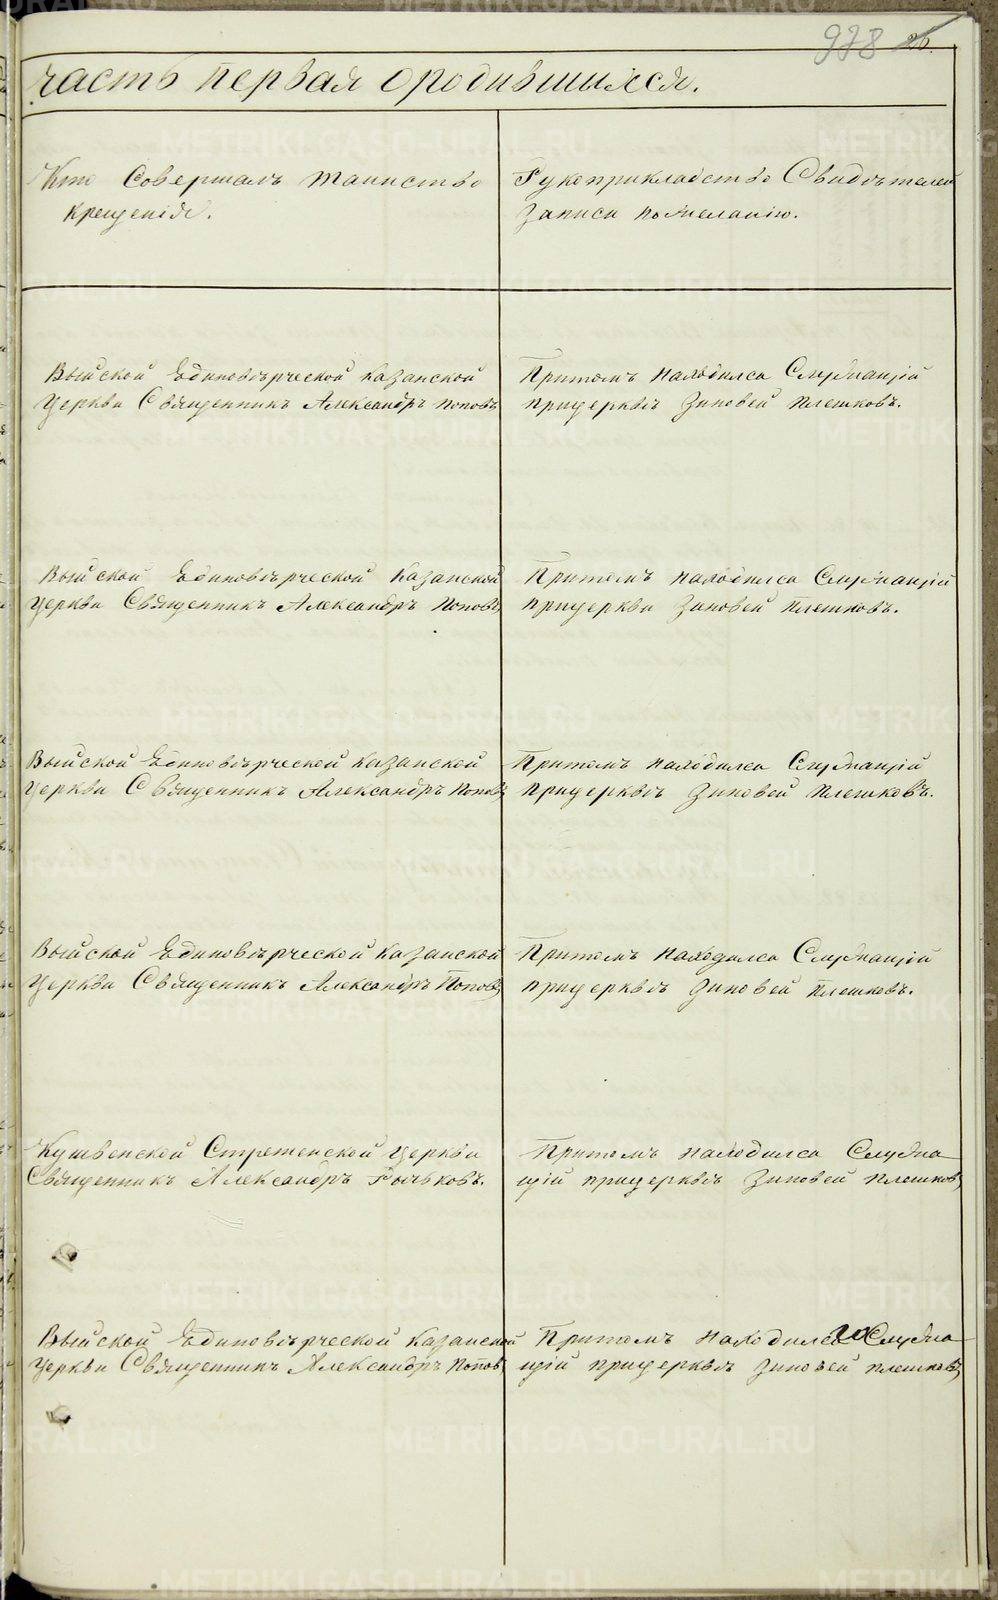 978 26.
часть первая ородившихся.
Кто Совершалъ таинство
крещенія.
Рукоприкладство Свидѣтелей
записи пожеланію.
Выйской Единовѣрческой Казанской
Церкви Священникъ Александръ Поповъ
Притомъ находился Служащій
прицерквѣ Зиновей Плешковъ.
Выйской Единовѣрческой Казанской
Церкви Священникъ Александръ Поповъ
Притомъ находился Служащій
прицеркви Зиновей Плешковъ.
Выйской Единовѣрческой Казанской
Церкви Священникъ Александръ Поповъ
Притомъ находился Служащій
прицерквѣ Зиновей Плешковъ.
Выйской Единовѣрческой Казанской
Церкви Священникъ Александръ Поповъ
Притомъ находился Служащій
прицерквѣ Зиновей Плешковъ.
Кушвенской Стретенской Церкви
Священникъ Александръ Рычьковъ.
Притомъ находился Служа
щій прицерквѣ Зиновей Плешковъ
Выйской Единовѣрческой Казанской
Церкви Священникъ Александръ Поповъ
Притомъ находился Служа
щій прицерквѣ Зиновей Плешковъ
METRIKI.GASO-URAL.RU